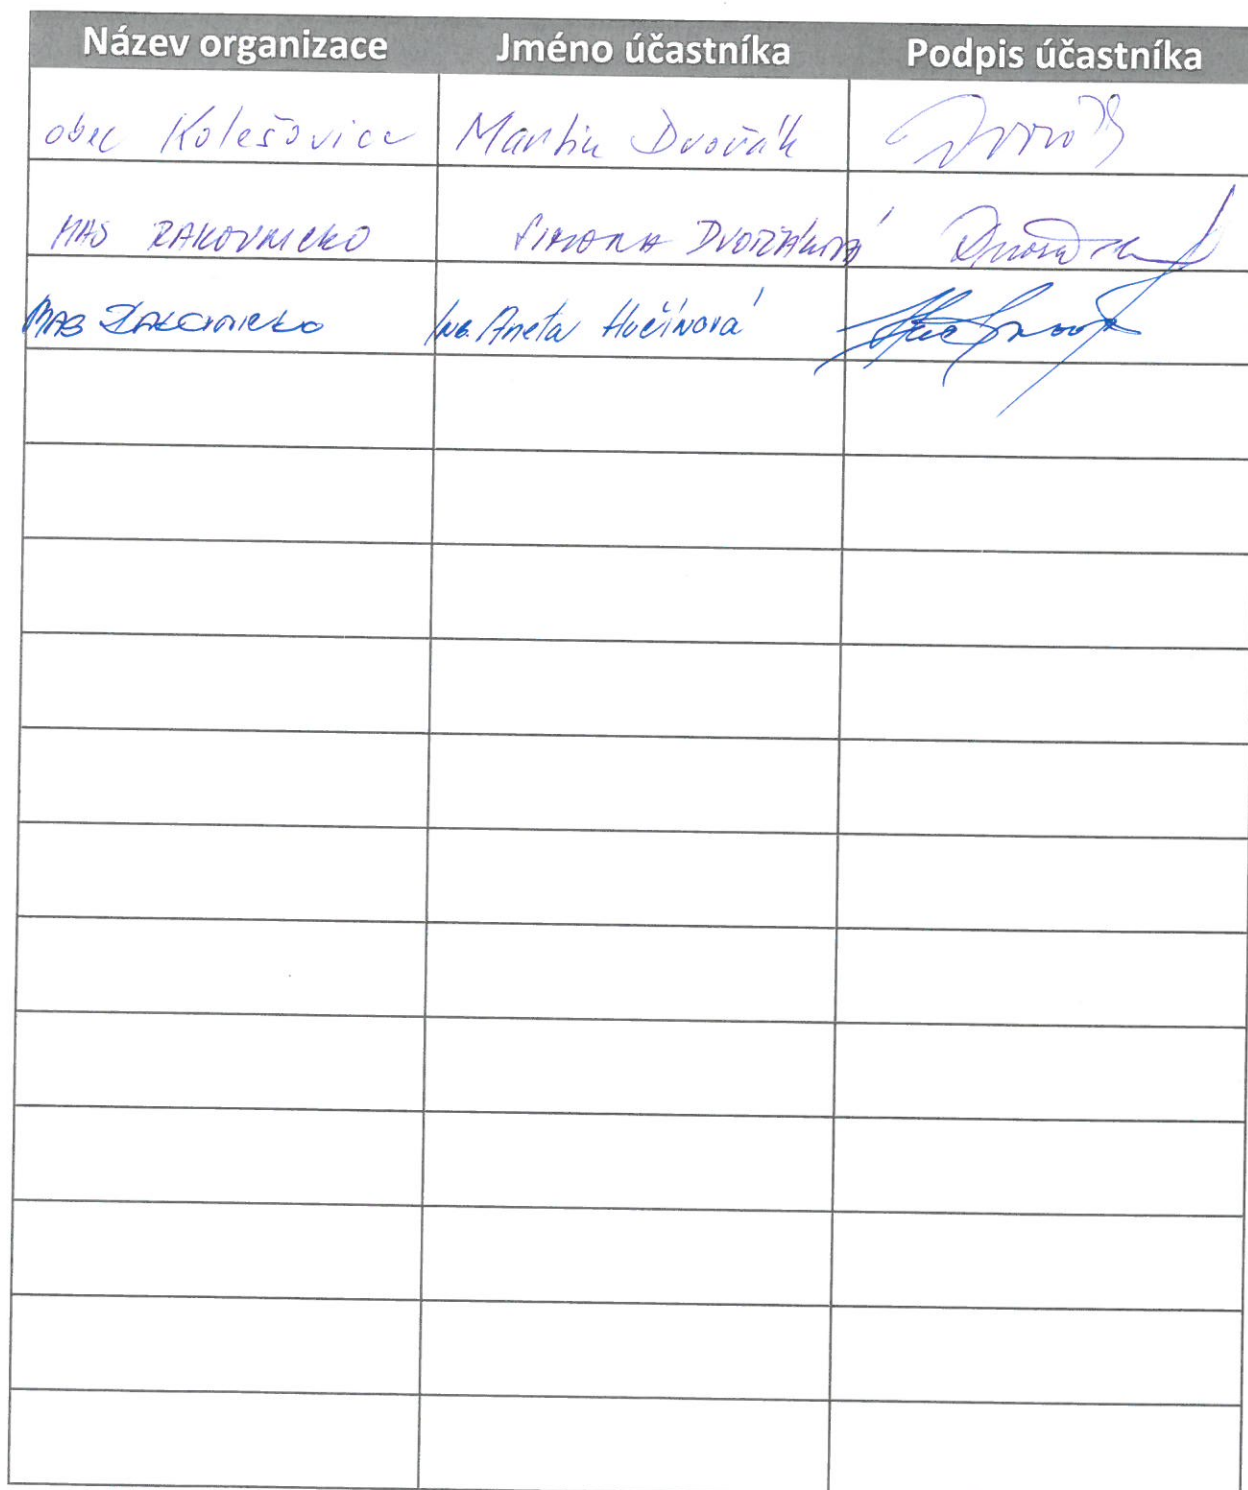 Název organizace Jméno účastníka Podpis účastníka
obec Kolešovice Martin Dvořák Dvořák
MAS RAKOVNICKO SIMONA DVOŘÁKOVÁ
MAS RAKOVNICKO ING. Aneta Hučínová